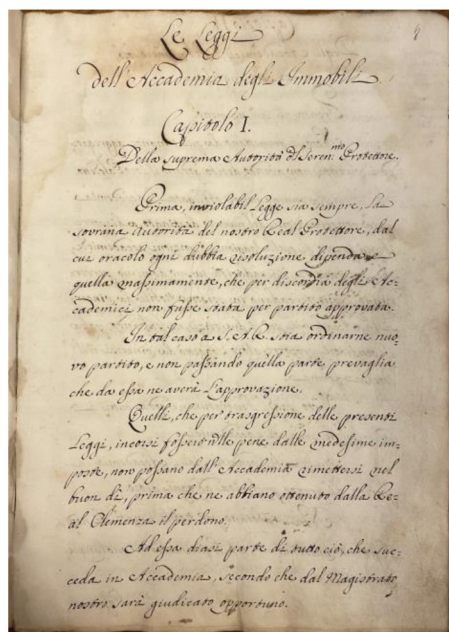 Le Leggi
dell'Accademia degli Immobili
Capitolo I.
Della suprema Autorità del Seren.mo Protettore.
Prima, inviolabil Legge sia sempre, la
sovrana Autorità del nostro Real Protettore, dal
cui oracolo ogni dubbia risoluzione dipenda e
quella massimamente, che per discordia degli Ac=
cademici non fusse stata per partito approvata.
In tal caso a S. A. R. stia ordinarne nuo=
vo partito, e non passando quella parte prevaglia
che da essa ne averà l'approvazione.
Quelli, che per trasgressione delle presenti
Leggi, incorsi fossero nelle pene dalle medesime im=
poste, non possano dall'Accademia rimettersi nel
buon dì, prima che ne abbiano ottenuto dalla Re=
al Clemenza il perdono.
Ad essa diasi parte di tutto ciò, che suc=
ceda in Accademia, secondo che dal Magistrato
nostro sarà giudicato opportuno.